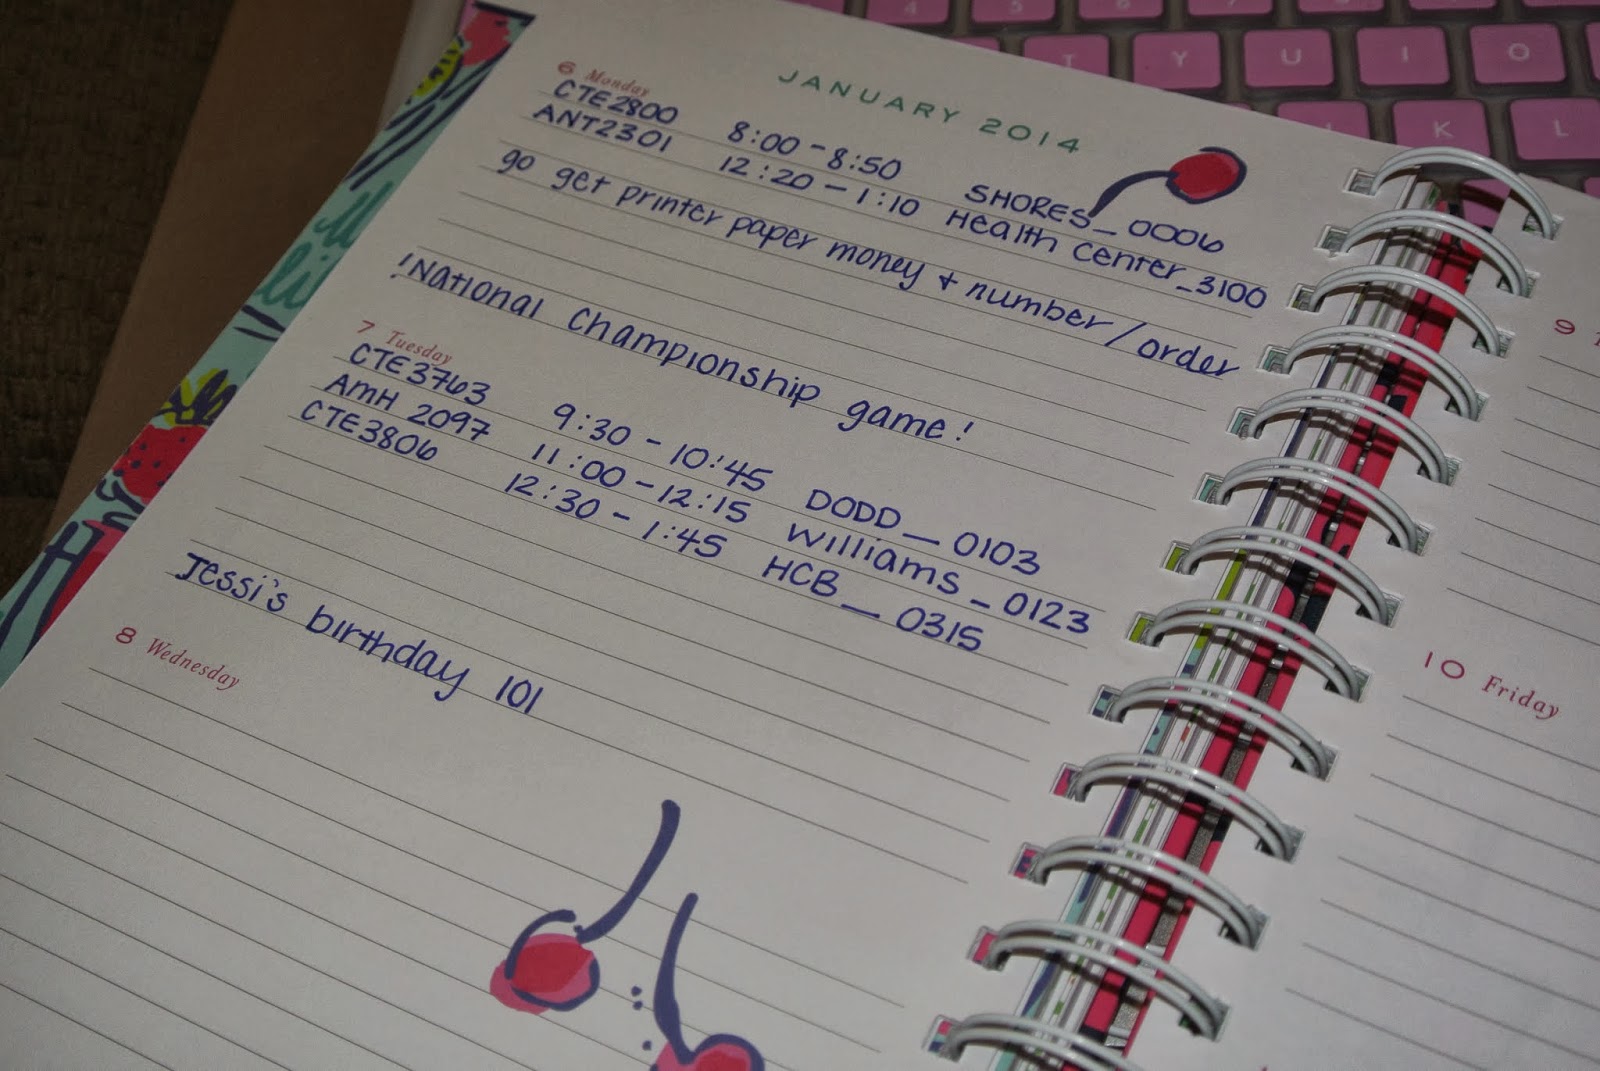 JANUARY 2014
6 Monday
CTE2800 8:00 - 8:50 SHORES_0006
ANT2301 12:20 - 1:10 Health Center_3100
go get printer paper money + number/order
!National Championship game!
7 Tuesday
CTE3763 9:30 - 10:45 DODD_0103
AMH 2097 11:00 - 12:15 Williams_0123
CTE3806 12:30 - 1:45 HCB_0315
Jessi's birthday 101
8 Wednesday
9
10 Friday
4 5 6 7 8 9
T Y U I O
K L